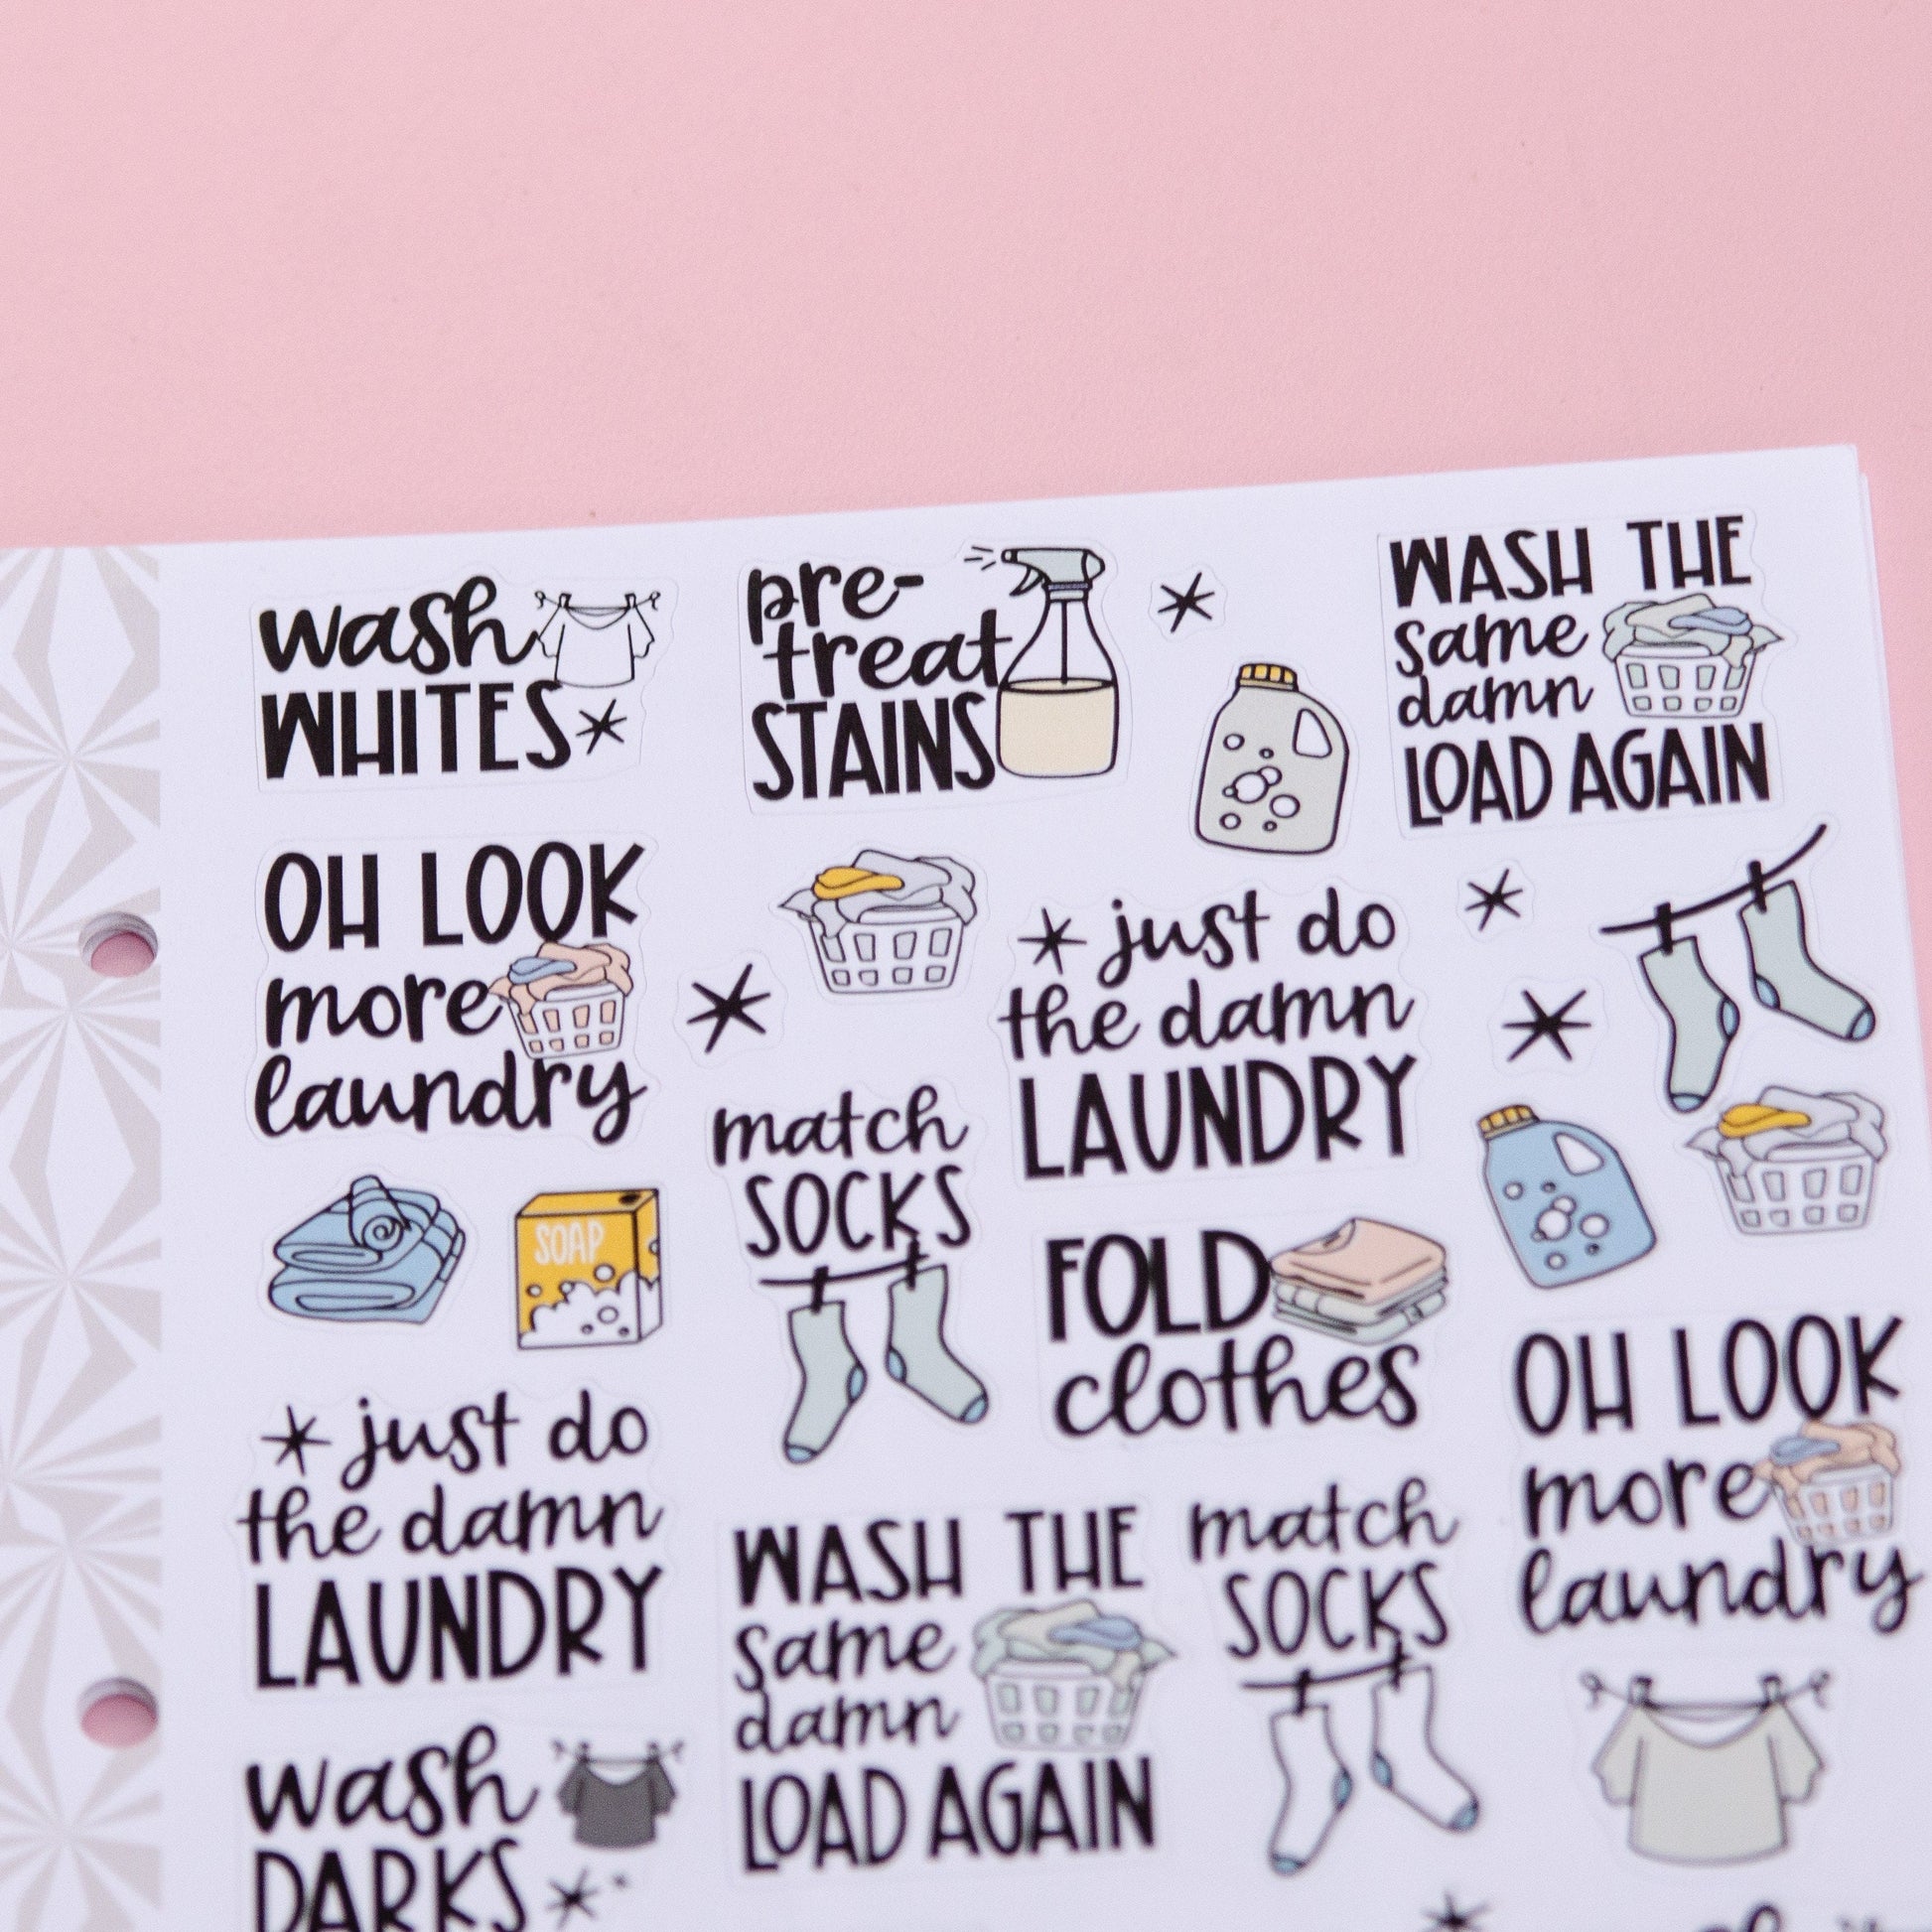 wash
WHITES
pre-
treat
STAINS
WASH THE
same
damn
LOAD AGAIN
OH LOOK
more
laundry
just do
the damn
LAUNDRY
match
SOCKS
SOAP
FOLD
clothes
OH LOOK
more
laundry
just do
the damn
LAUNDRY
WASH THE
same
damn
LOAD AGAIN
match
SOCKS
wash
DARKS